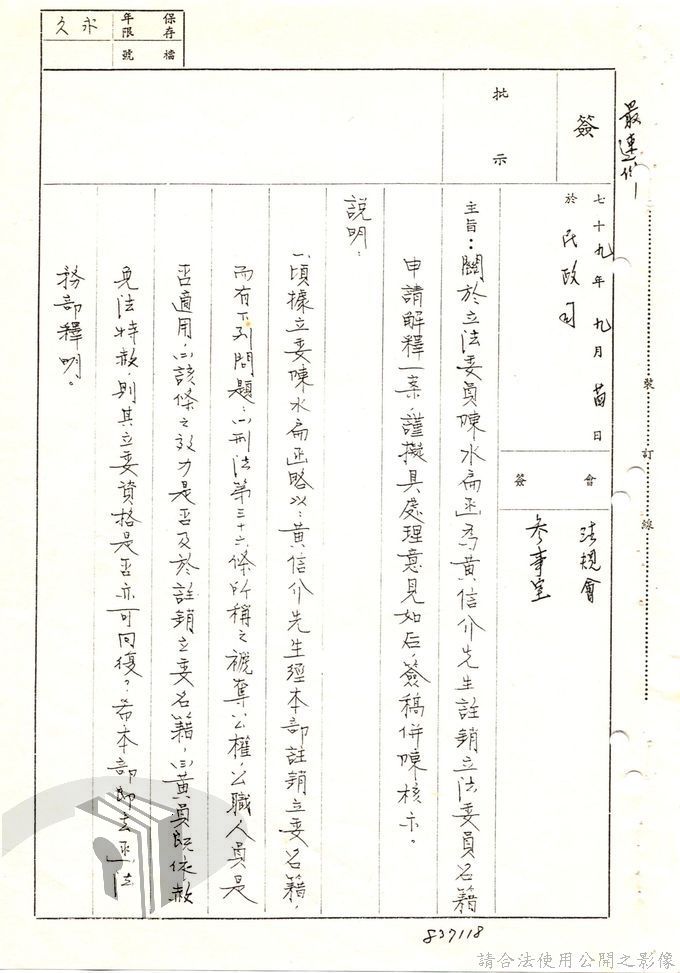 最速件
保存年限
永久
檔號
簽
七十九年九月廿四日
於民政司
批示
會簽
法規會
參事室
主旨：關於立法委員陳水扁函為黃信介先生註銷立法委員名籍
申請解釋一案，謹擬具處理意見如后，簽稿併陳核示。
說明：
一、頃據立委陳水扁函略以：黃信介先生經本部註銷立委名籍，
而有下列問題：㈠刑法第三十六條所稱之褫奪公權，公職人員是
否適用，㈡該條之效力是否及於註銷立委名籍，㈢黃員既依赦
免法特赦，則其立委資格是否亦可回復？希本部即去函法
務部釋明。
裝訂線
837118
請合法使用公開之影像